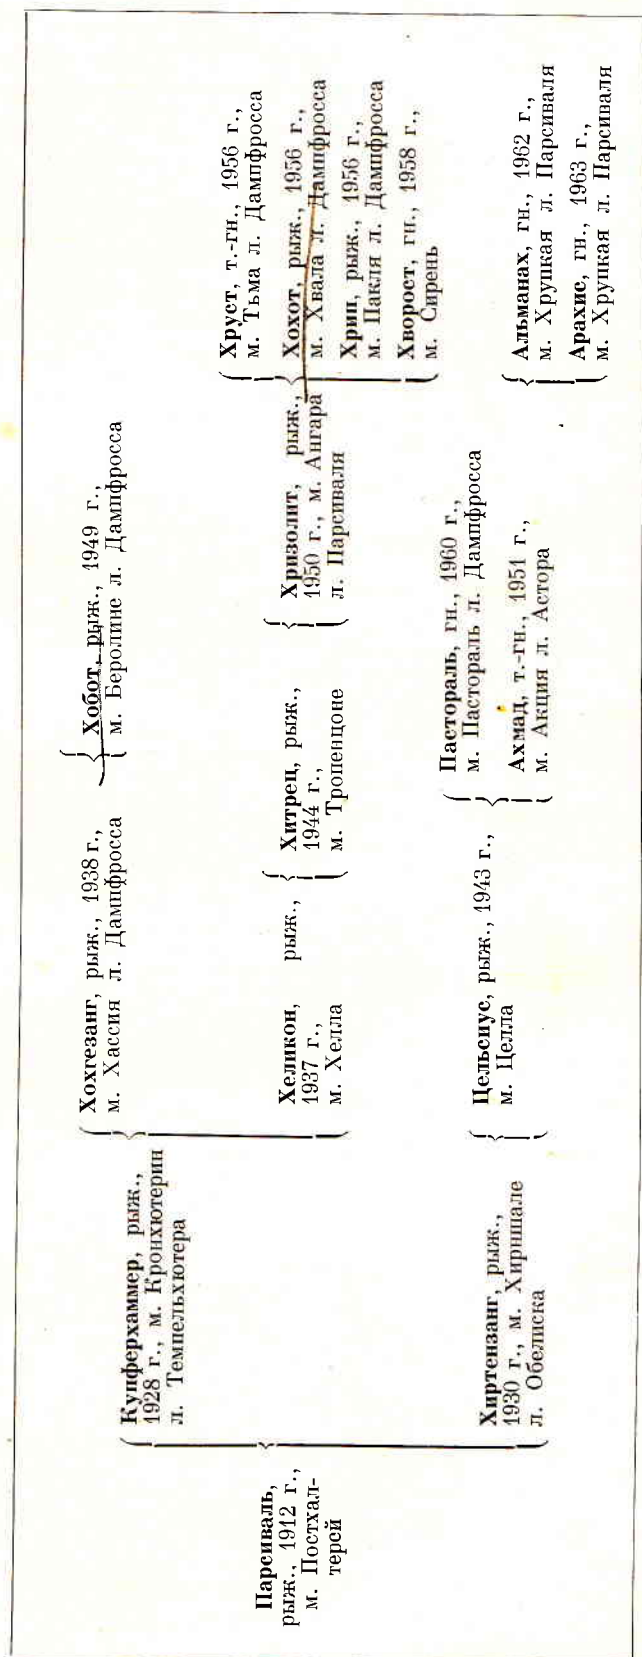 Парсиваль,
рыж., 1912 г.,
м. Постхал-
терей
Купферхаммер, рыж.,
1928 г., м. Кронхютерин
л. Темпельхютера
Хиртензанг, рыж.,
1930 г., м. Хиршале
л. Обелиска
Хохгезанг, рыж., 1938 г.,
м. Хассия л. Дампфросса
Хеликон, рыж.,
1937 г.,
м. Хелла
Цельсиус, рыж., 1943 г.,
м. Целла
Хобот, рыж., 1949 г.,
м. Беролине л. Дампфросса
Хитрец, рыж.,
1944 г.,
м. Тропенцоне
Пастораль, гн., 1960 г.,
м. Пастораль л. Дампфросса
Ахмад, т.-гн., 1951 г.,
м. Акция л. Астора
Хризолит, рыж.,
1950 г., м. Ангара
л. Парсиваля
Хруст, т.-гн., 1956 г.,
м. Тьма л. Дампфросса
Хохот, рыж., 1956 г.,
м. Хвала л. Дампфросса
Хрип, рыж., 1956 г.,
м. Пакля л. Дампфросса
Хворост, гн., 1958 г.,
м. Сирень
Альманах, гн., 1962 г.,
м. Хрупкая л. Парсиваля
Арахис, гн., 1963 г.,
м. Хрупкая л. Парсиваля